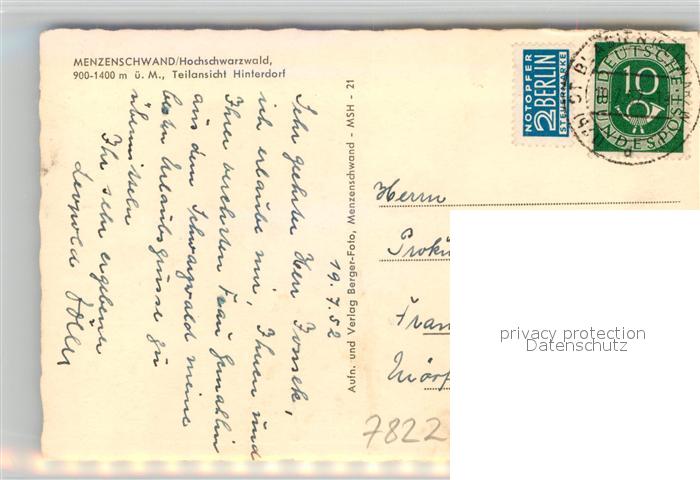 MENZENSCHWAND/Hochschwarzwald,
900-1400 m ü. M., Teilansicht Hinterdorf
NOTOPFER
2 BERLIN
STEUERMARKE
DEUTSCHE
10
BUNDESPOST
Aufn. und Verlag Berger-Foto, Menzenschwand - MSH - 21
19.7.52
Sehr geehrter Herr
ich erlaube mir, Ihnen und
Ihrer verehrten Frau Gemahlin
aus dem Schwarzwald meine
besten Urlaubsgrüsse zu
übermitteln
Ihr sehr ergebener
Leopold
Herrn
Proku
Fran
Mörf
7822
privacy protection
Datenschutz